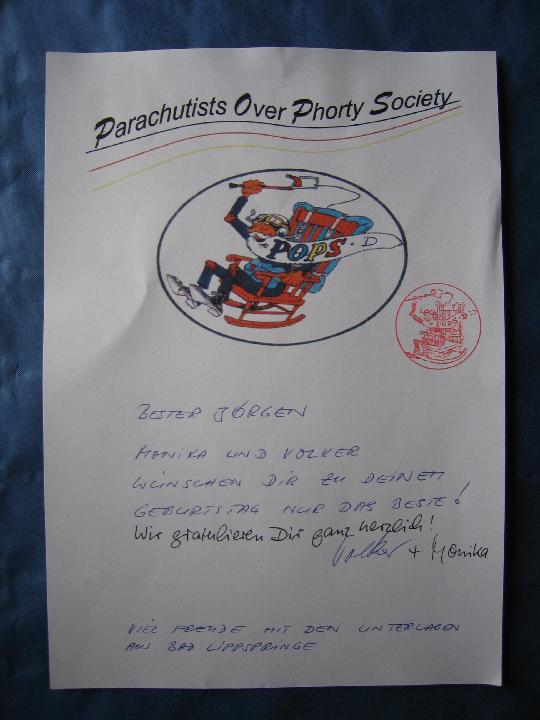 Parachutists Over Phorty Society
POPS-D
POPS
BESTER JÖRGEN
MONIKA UND VOLKER
WÜNSCHEN DIR ZU DEINEM
GEBURTSTAG NUR DAS BESTE!
Wir gratulieren Dir ganz herzlich!
Volker + Monika
VIEL FREUDE MIT DEN UNTERLAGEN
AUS BAD LIPPSPRINGE